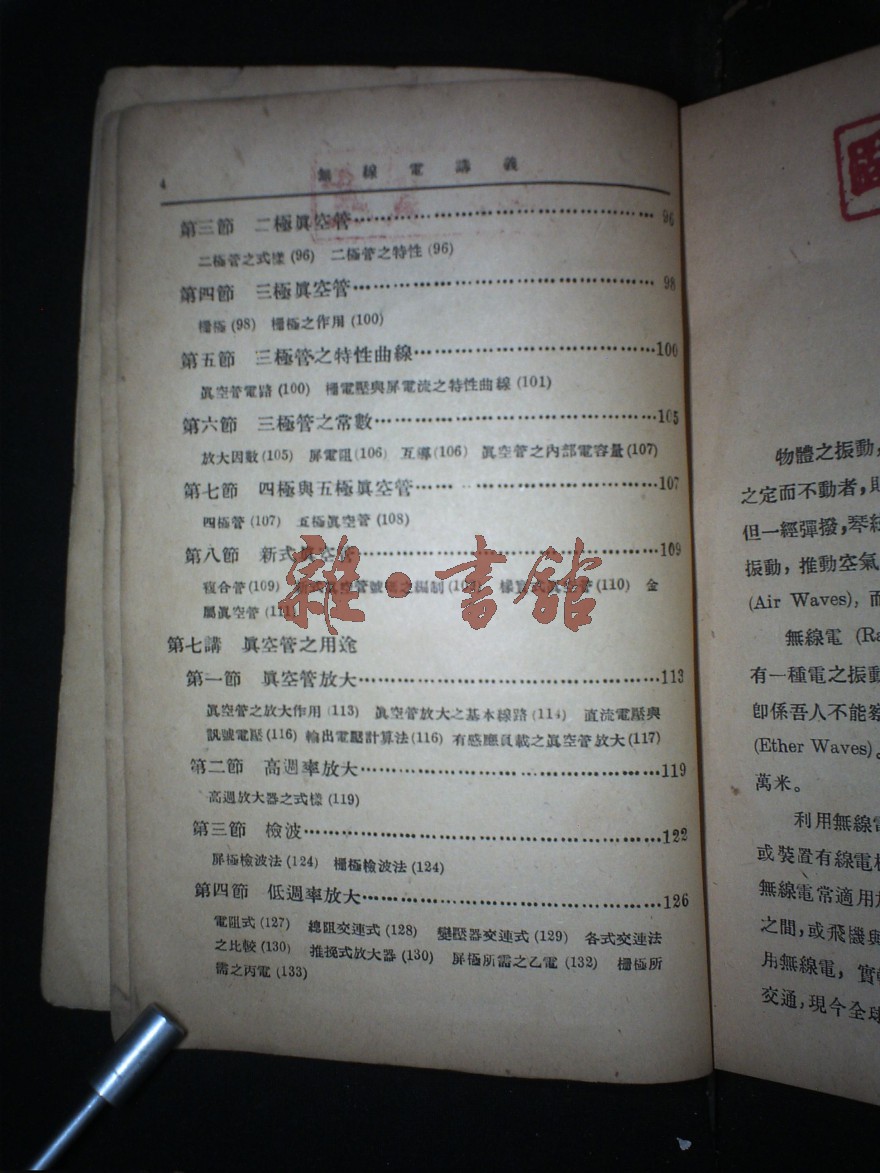 4
無線電講義
第三節 二極眞空管 96
二極管之式樣 (96) 二極管之特性 (96)
第四節 三極眞空管 98
柵極 (98) 柵極之作用 (100)
第五節 三極管之特性曲線 100
眞空管電路 (100) 柵電壓與屏電流之特性曲線 (101)
第六節 三極管之常數 105
放大因數 (105) 屏電阻 (106) 互導 (106) 眞空管之內部電容量 (107)
第七節 四極與五極眞空管 107
四極管 (107) 五極眞空管 (108)
第八節 新式眞空管 109
複合管 (109) 新式眞空管號之編制 (109) 式眞空管 (110) 金
屬眞空管 (111)
雜·書館
第七講 眞空管之用途
第一節 眞空管放大 113
眞空管之放大作用 (113) 眞空管放大之基本線路 (114) 直流電壓與
訊號電壓 (116) 輸出電壓計算法 (116) 有感應負載之眞空管放大 (117)
第二節 高週率放大 119
高週放大器之式樣 (119)
第三節 檢波 122
屏極檢波法 (124) 柵極檢波法 (124)
第四節 低週率放大 126
電阻式 (127) 總阻交連式 (128) 變壓器交連式 (129) 各式交連法
之比較 (130) 推挽式放大器 (130) 屏極所需之乙電 (132) 柵極所
需之丙電 (133)
物體之振動,
之定而不動者,
但一經彈撥,琴
振動,推動空氣
(Air Waves), 而
無線電 (Ra
有一種電之振動
卽係吾人不能察
(Ether Waves)。
萬米。
利用無線電
或裝置有線電
無線電常適用
之間,或飛機與
用無線電,實
交通,現今全球